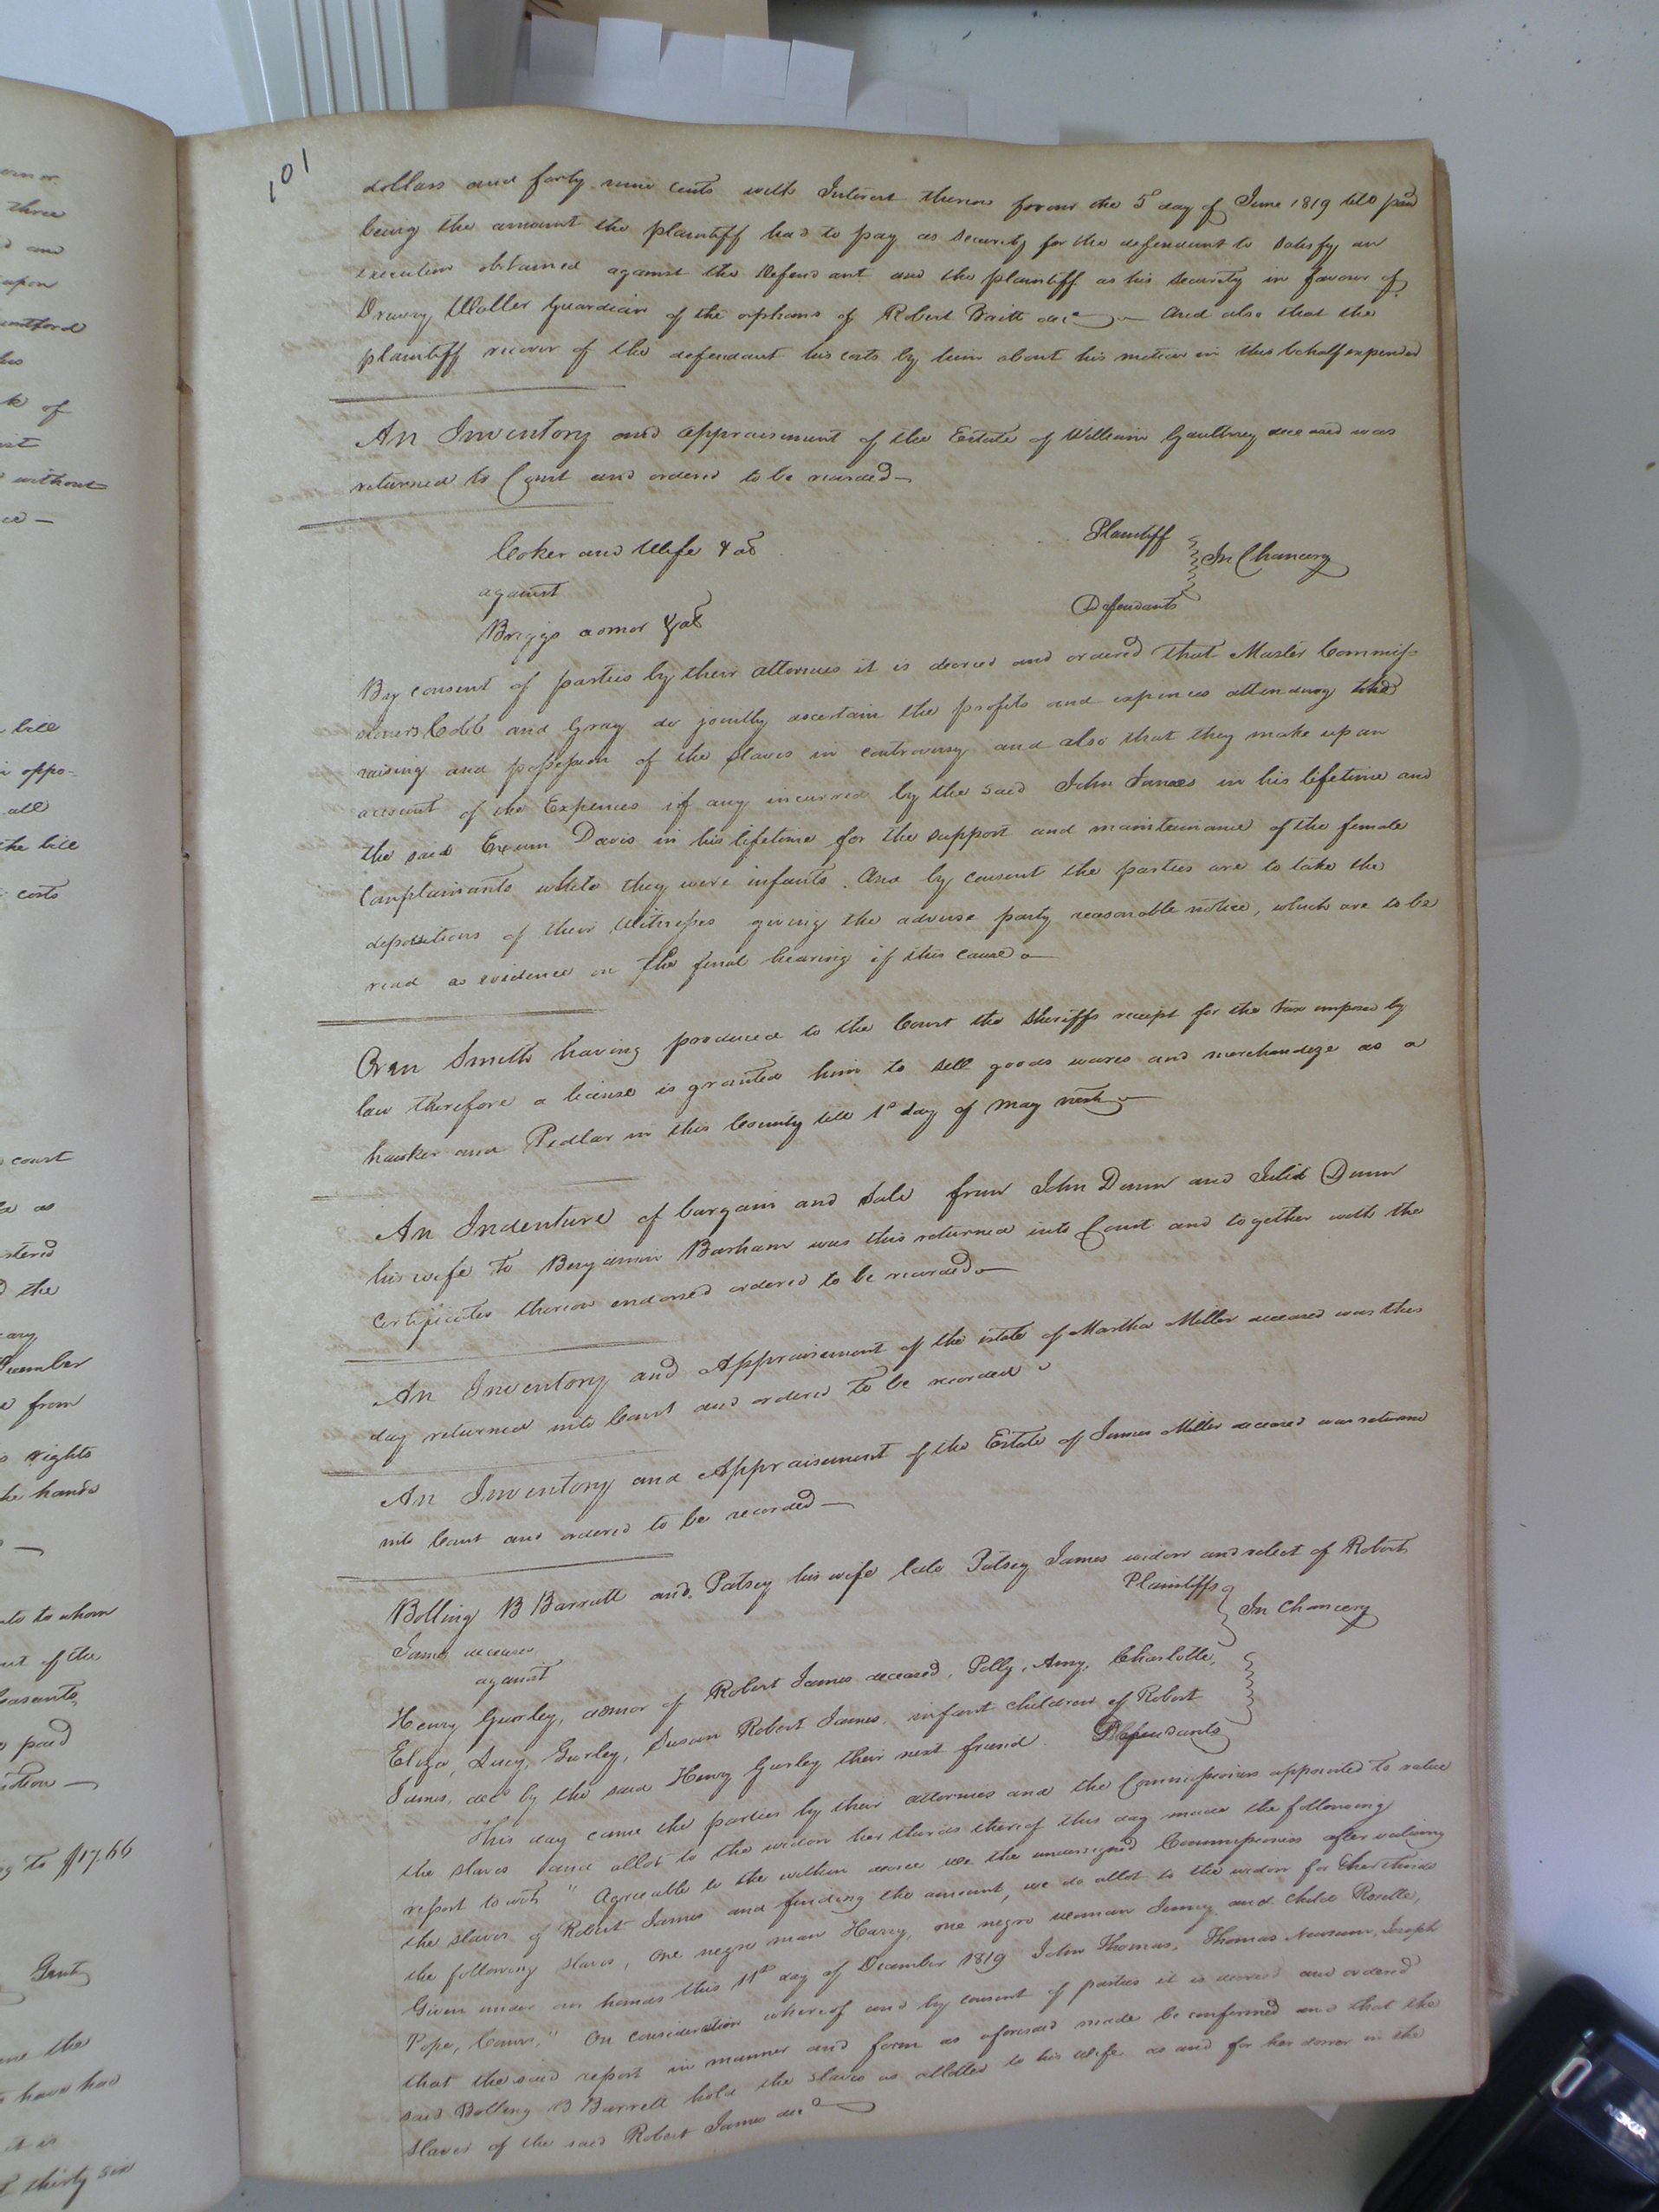 101
dollars and forty nine cents with Interest thereon from the 5th day of June 1819 till paid
being the amount the plaintiff had to pay as security for the defendant to satisfy an
execution obtained against the Defendant and the plaintiff as his security in favour of
Drewry Waller Guardian of the orphans of Robert Britt decd And also that the
plaintiff recover of the defendant his costs by him about his motion in this behalf expended
An Inventory and appraisement of the Estate of William Gaultney deceased was
returned to Court and ordered to be recorded
Coker and Wife & al Plaintiff
against In Chancery
Briggs admor & al Defendants
By consent of parties by their attornies it is decreed and ordered That Master Commiss
sioners Cobb and Gray do jointly ascertain the profits and expences attending the
raising and possession of the slaves in controversy and also that they make up an
account of the Expences if any incurred by the said John in his lifetime and
the said Exum Davis in his lifetime for the support and maintainance of the female
Complainants while they were infants. And by consent the parties are to take the
depositions of their Witnesses giving the adverse party reasonable notice, which are to be
read as evidence on the final hearing of this cause
Oren Smith having produced to the Court the Sheriffs receipt for the tax imposed by
law therefore a license is granted him to sell goods wares and merchandize as a
hawker and Pedlar in this County till 1st day of May next
An Indenture of bargain and sale from John Dunn and Dunn
his wife to Benjamin Barham was this returned into Court and together with the
certificates thereon endorsed ordered to be recorded
An Inventory and Appraisement of the estate of Martha Miller deceased was this
day returned into Court and ordered to be recorded
An Inventory and Appraisement of the Estate of James Miller deceased was returned
into Court and ordered to be recorded
Bolling B Barrett and Patsey his wife late Patsey James widow and relict of Robert
James deceased Plaintiffs
against In Chancery
Henry Gurley, admor of Robert James deceased, Polly, Amy, Charlotte,
Eliza, Lucy, Gurley, Susan Robert James, infant children of Robert
James, decd by the said Henry Gurley their next friend. Defendants
This day came the parties by their attornies and the Commissioners appointed to value
the slaves and allot to the widow her thirds thereof this day made the following
report to wit, " Agreeable to the within decree we the undersigned Commissioners after valuing
the slaves of Robert James and finding the amount, we do allot to the widow for her thirds
the following slaves, one negro man Harry, one negro woman Jenny and child Rosette,
Given under our hands this 11th day of December 1819 John Thomas, Thomas Newsum, Joseph
Pope, Comrs." On consideration whereof and by consent of parties it is decreed and ordered
that the said report in manner and form as aforesaid made be confirmed and that the
said Bolling B Barrett hold the slaves as allotted to his wife as and for her dower in the
slaves of the said Robert James decd
three
and
upon
k of
without
court
the
from
rights
the hands
to whom
of the
paid
to $17.66
Gent
the
have had
it is
thirty six
NOKIA